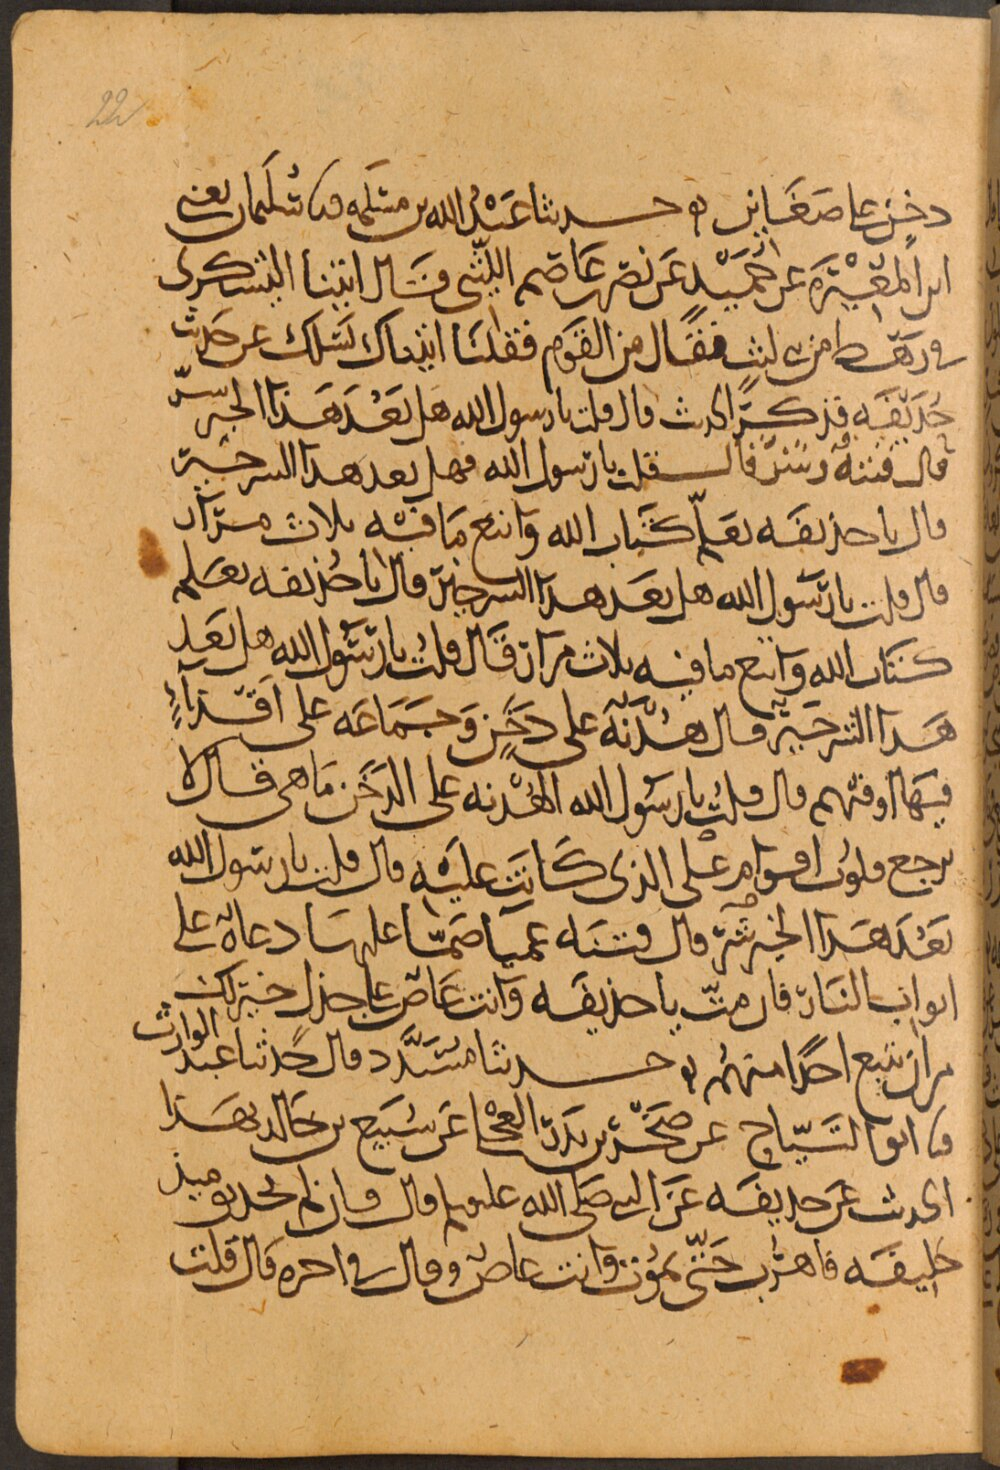 22
دخن على صغاين حدثنا عبد الله بن مسلمه ثنا سليمان يعني
ابن المغيرة عن حميد عن نصر بن عاصم الليثي قال اتينا اليشكري
في رهط من بني ليث فقال من القوم فقلنا اتيناك نسلك عن حديث
حذيفه فذكر الحديث قال قلت يا رسول الله هل بعد هذا الخير شر
قال فتنة وشر قال قلت يا رسول الله فهل بعد هذا الشر خير
قال يا حذيفه تعلم كتاب الله واتبع ما فيه ثلاث مرات
قال قلت يا رسول الله هل بعد هذا الشر خير قال يا حذيفه تعلم
كتاب الله واتبع ما فيه ثلاث مرات قال قلت يا رسول الله هل بعد
هذا الشر خير قال هدنة على دخن وجماعه على اقذاء
فيها او فيهم قال قلت يا رسول الله الهدنه على الدخن ما هي قال لا
ترجع قلوب اقوام على الذي كانت عليه قال قلت يا رسول الله
بعد هذا الخير شر قال فتنه عميا صما عليها دعاة على
ابواب النار فان مت يا حذيفه وانت عاض على جذل خير لك
من ان تتبع احدا منهم حدثنا مسدد قال حدثنا عبد الوارث
ثنا ابو التياح عن صخر بن بدر العجلي عن سبيع بن خالد بهذا
الحديث عن حذيفه عن النبي صلى الله عليه وسلم قال فان لم تجد يوميذ
خليفه فاهرب حتى تموت وانت عاض وقال في اخره قال قلت